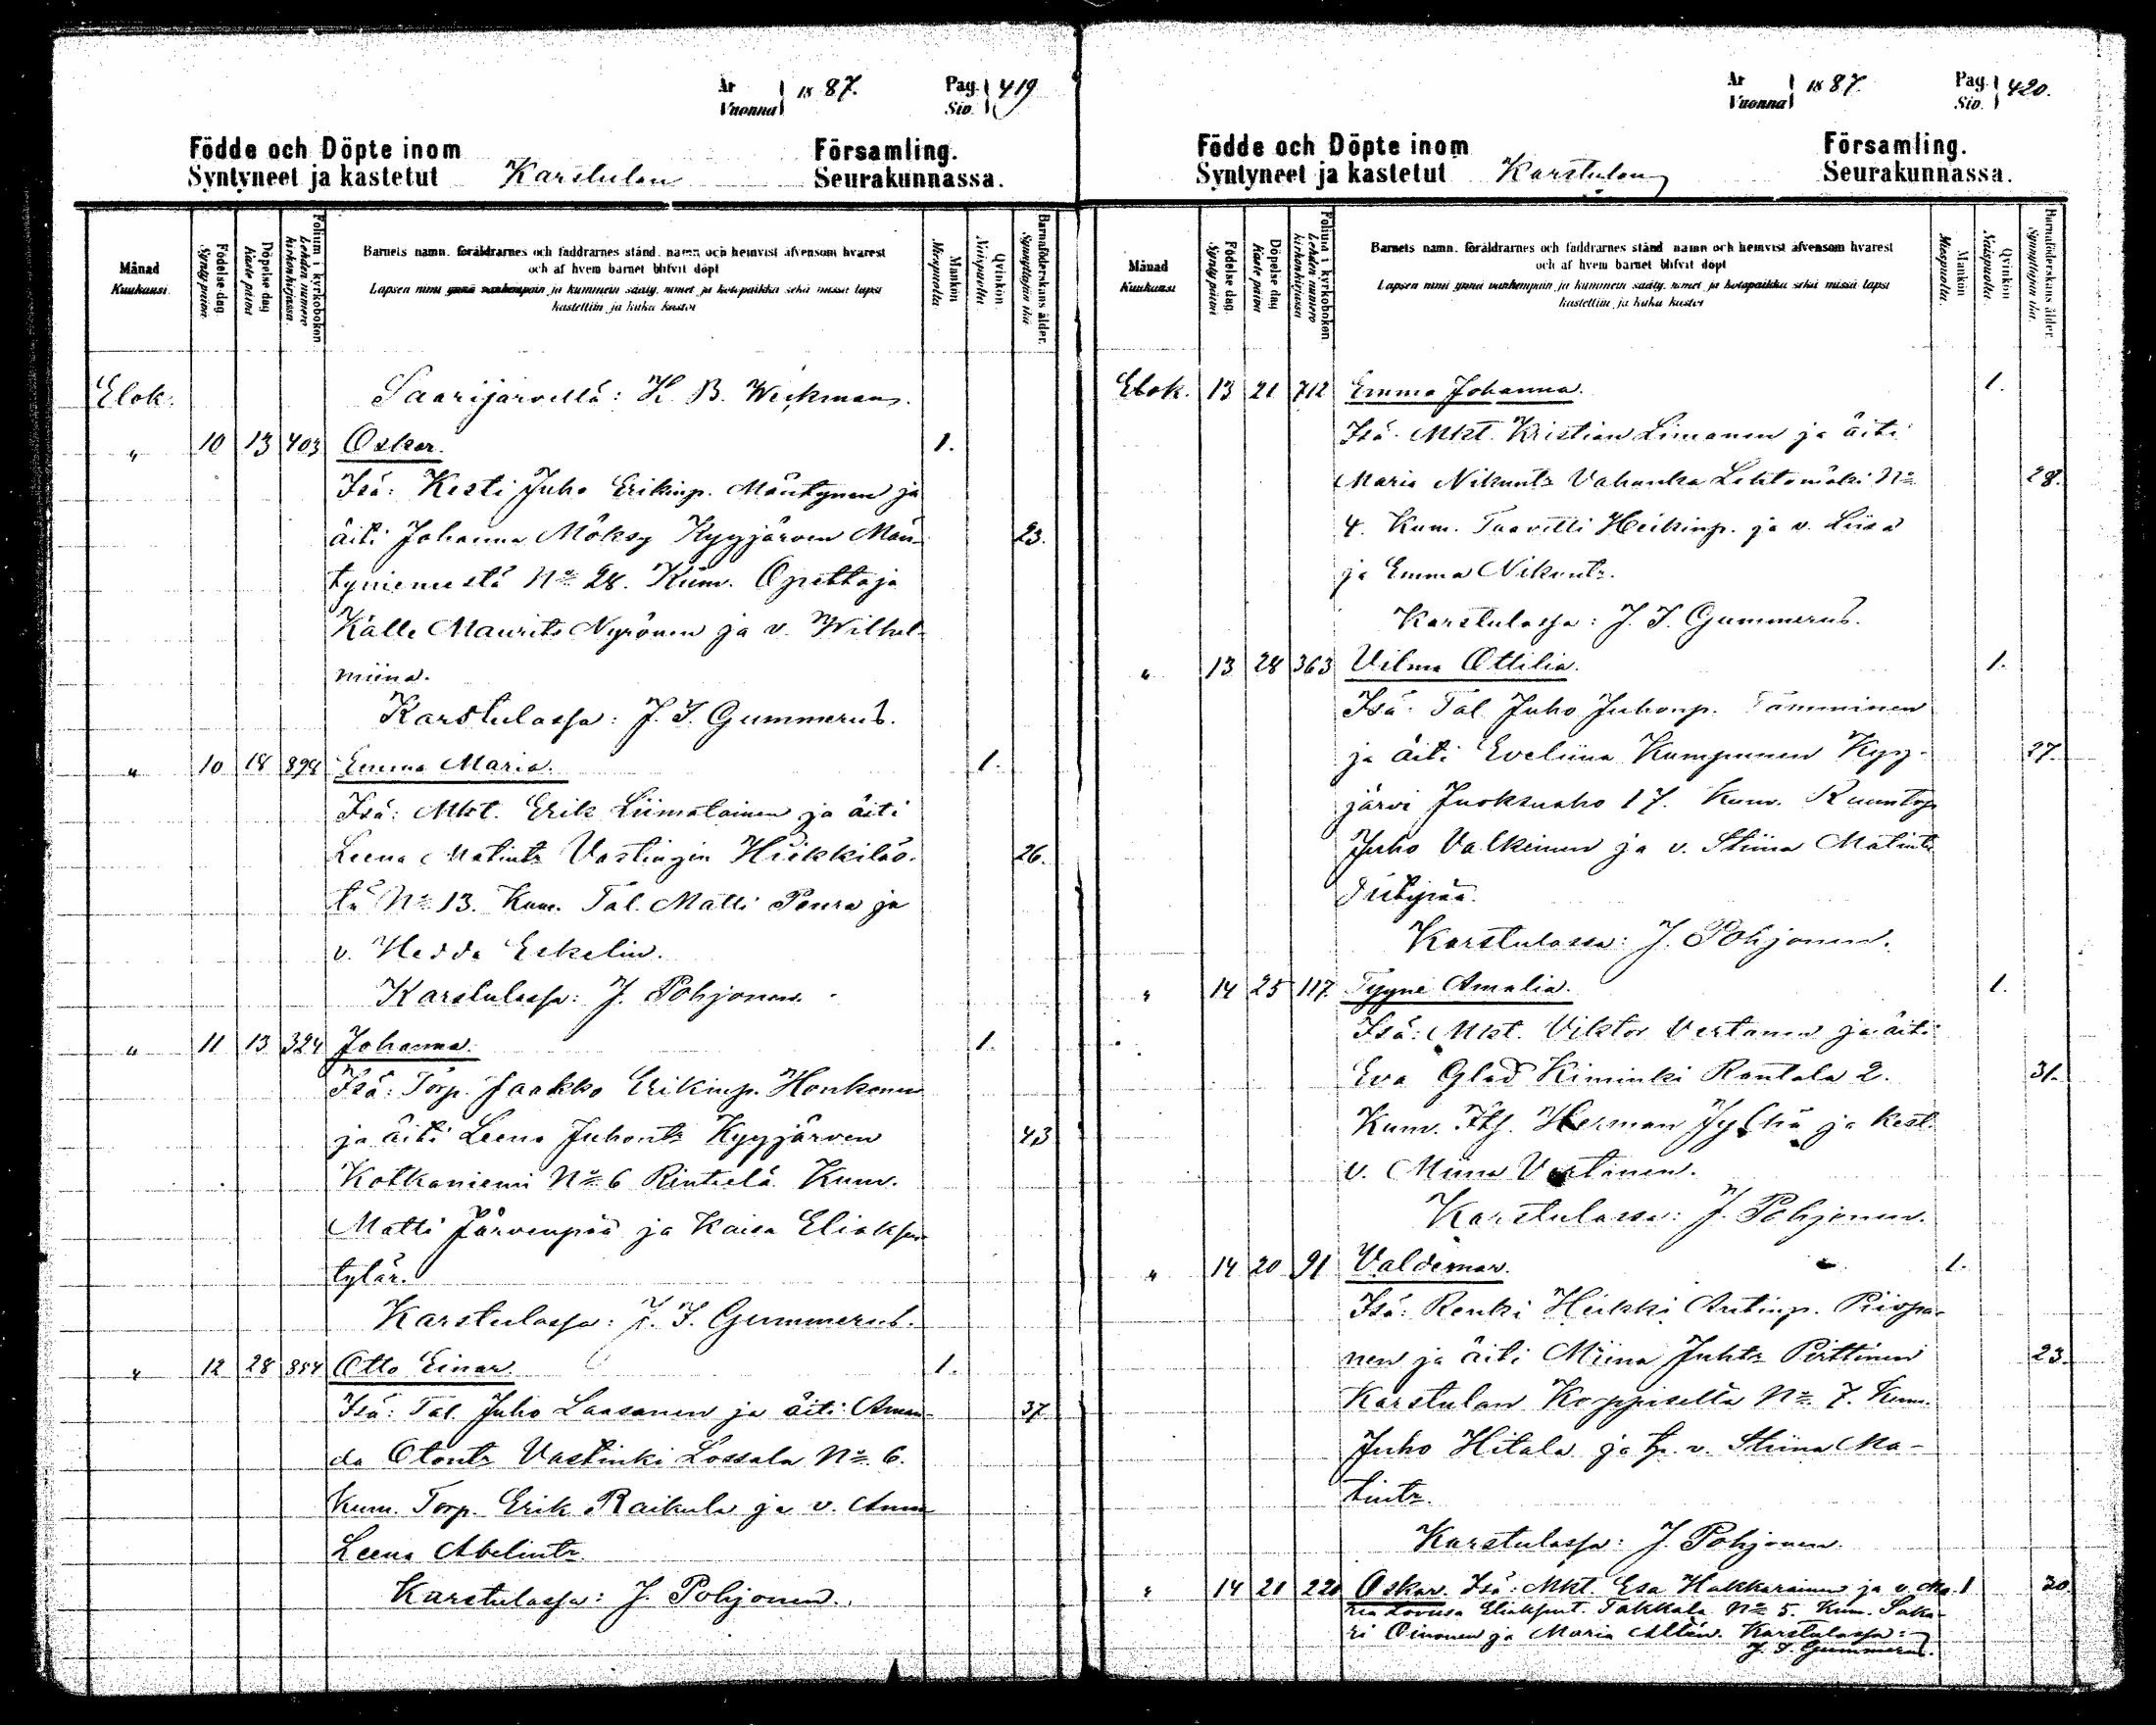 År
Vuonna 1887.
Pag.
Siv. 419
Födde och Döpte inom
Syntyneet ja kastetut Karstulan
Församling.
Seurakunnassa.
Månad
Kuukausi
Födelse dag
Synty päivä
Döpelse dag
Kaste päivä
Folium i kyrkoboken
Lehden numero kirkonkirjassa
Barnets namn, föräldrarnes och faddrarnes stånd, namn och hemvist äfvensom hvarest
och af hvem barnet blifvit döpt
Lapsen nimi ynnä vanhempain ja kummein sääty, nimet ja kotopaikka sekä missä lapsi
kastettiin ja kuka kastoi
Mankön
Miespuolta.
Qvinkön
Naispuolta.
Barnaföderskans ålder.
Synnyttäjän ikä
Elok. Saarijärvellä: K. B. Weckman.
" 10 13 403 Oskar. 1.
Isä: Kesti Juho Erikinp. Mäntynen ja
äiti Johanna Möksy Kyyjärven Män- 23.
tyniemestä No 28. Kum. Opettaja
Kalle Maurits Nyrönen ja v. Wilhel-
miina.
Karstulassa: J. I. Gummerus.
" 10 18 898 Emma Maria. 1.
Isä: Mkt. Erik Liimatainen ja äiti
Leena Matintr Vastingin Hiekkiläs- 26.
tä No 13. Kum. Tal. Matti Peura ja
v. Hedda Eskelin.
Karstulassa: J. Pohjonen.
" 11 13 324 Johanna. 1.
Isä: Torp. Jaakko Erikinp. Honkonen
ja äiti Leena Juhontr Kyyjärven 43
Kotkaniemi No 6 Rintielä. Kum.
Matti Järvenpää ja Kaisa Eliaksen-
tytär.
Karstulassa: J. I. Gummerus.
" 12 28 854 Otto Einar. 1.
Isä: Tal. Juho Laasanen ja äiti Aman- 37
da Otontr Vastinki Lossala No 6.
Kum. Torp. Erik Raikula ja v. Anna
Leena Abelintr.
Karstulassa: J. Pohjonen.
År
Vuonna 1887.
Pag.
Siv. 420.
Födde och Döpte inom
Syntyneet ja kastetut Karstulan
Församling.
Seurakunnassa.
Månad
Kuukausi
Födelse dag.
Synty päivä
Döpelse dag
Kaste päivä
Folium i kyrkoboken
Lehden numero kirkonkirjassa
Barnets namn, föräldrarnes och faddrarnes stånd, namn och hemvist äfvensom hvarest
och af hvem barnet blifvit döpt
Lapsen nimi ynnä vanhempain ja kummein sääty, nimet ja kotopaikka sekä missä lapsi
kastettiin ja kuka kastoi
Mankön
Miespuolta.
Qvinkön
Naispuolta.
Barnaföderskans ålder.
Synnyttäjän ikä.
Elok. 13 21 712 Emma Johanna. 1.
Isä: Mkt. Kristian Limonen ja äiti
Maria Nikuntr Vahanka Lehtomäki No 28.
4. Kum. Taavitti Heikinp. ja v. Liisa
ja Emma Nikuntr.
Karstulassa: J. I. Gummerus.
" 13 28 363 Vilma Ottilia. 1.
Isä: Tal. Juho Juhonp. Tamminen
ja äiti Eveliina Kumpunen Kyy- 27.
järvi Juoksuaho 17. Kum. Ruuntop
Juho Valkeinen ja v. Stiina Matintr
Karstulassa: J. Pohjonen.
" 14 25 117. Tyyne Amalia. 1.
Isä: Mkt. Viktor Vertanen ja äiti
Eva Glad Kiminki Rantala 2. 31.
Kum. Itj. Herman Jylhä ja Kest.
v. Miina Vertanen.
Karstulassa: J. Pohjonen.
" 14 20 91 Valdemar. 1.
Isä: Renki Heikki Antinp. Piispa-
nen ja äiti Miina Juhtr Pirttinen 23.
Karstulan Korppisella No 7. Kum.
Juho Hitala ja tp. v. Stiina Ma-
tintr.
Karstulassa: J. Pohjonen.
" 14 21 220 Oskar. Isä: Mkt. Esa Hakkarainen ja v. Ma- 1 30
ria Lovisa Eliaksent. Takkala No 5. Kum. Saka-
ri Oinonen ja Maria Alten. Karstulassa:
J. I. Gummerus.